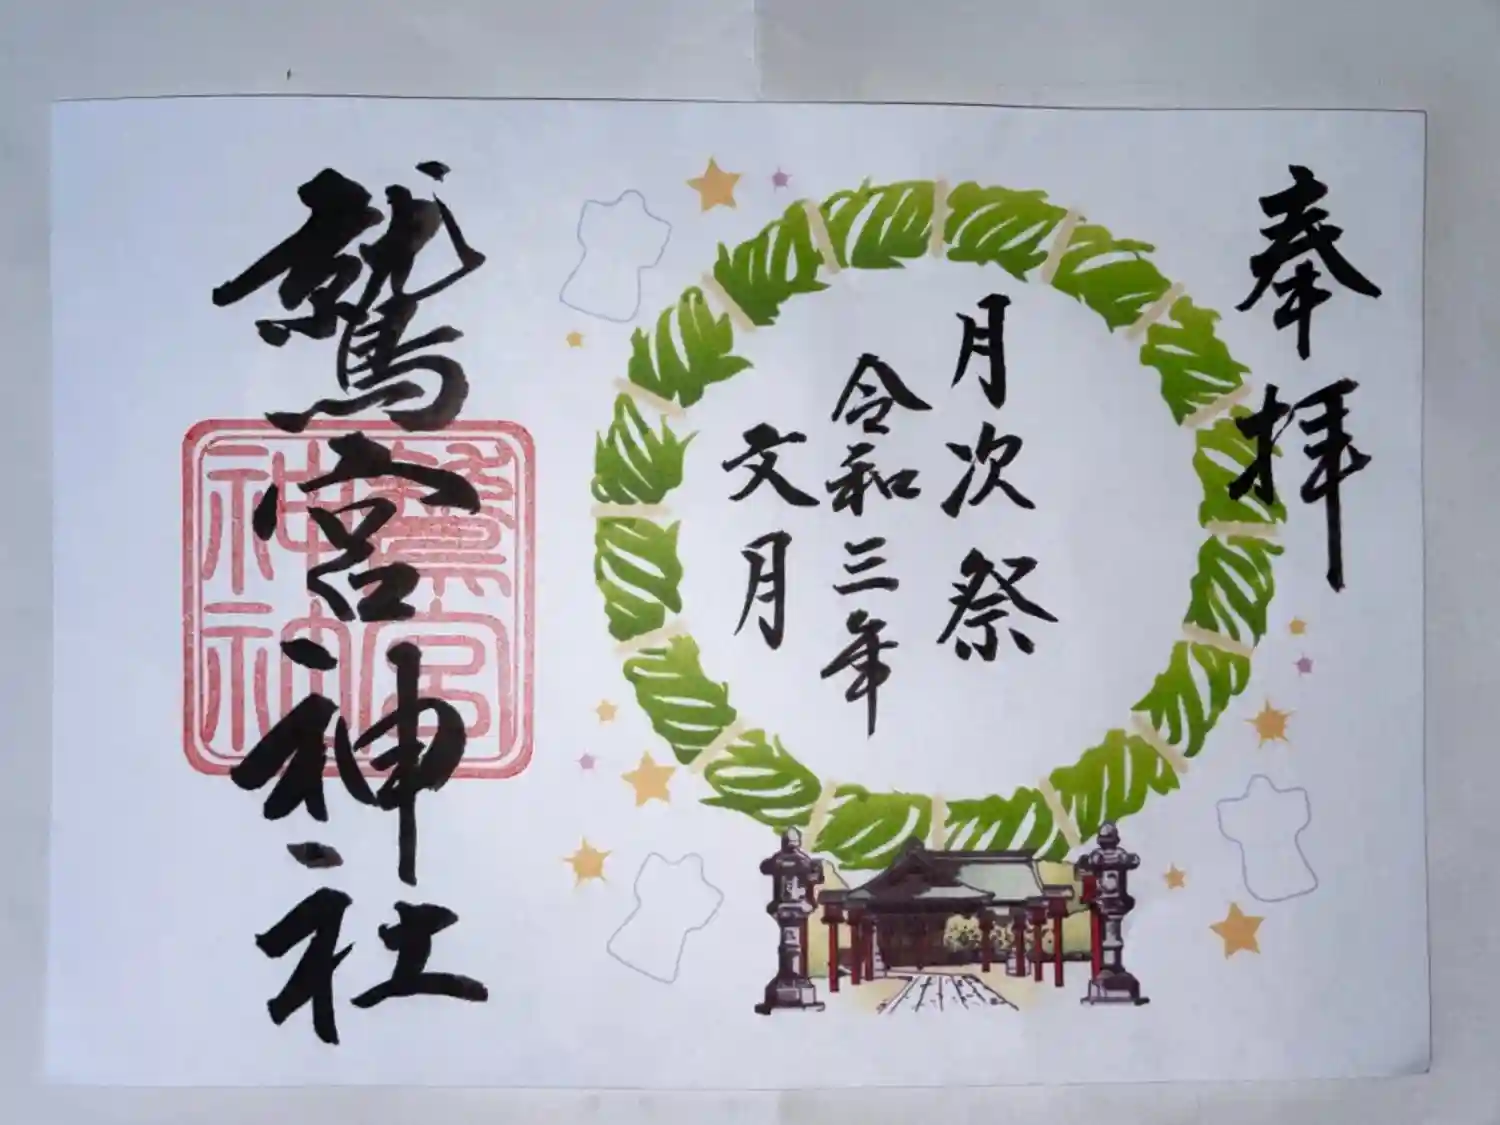 奉拝
月次祭
令和三年
文月
鷲宮神社
鷲宮
神社